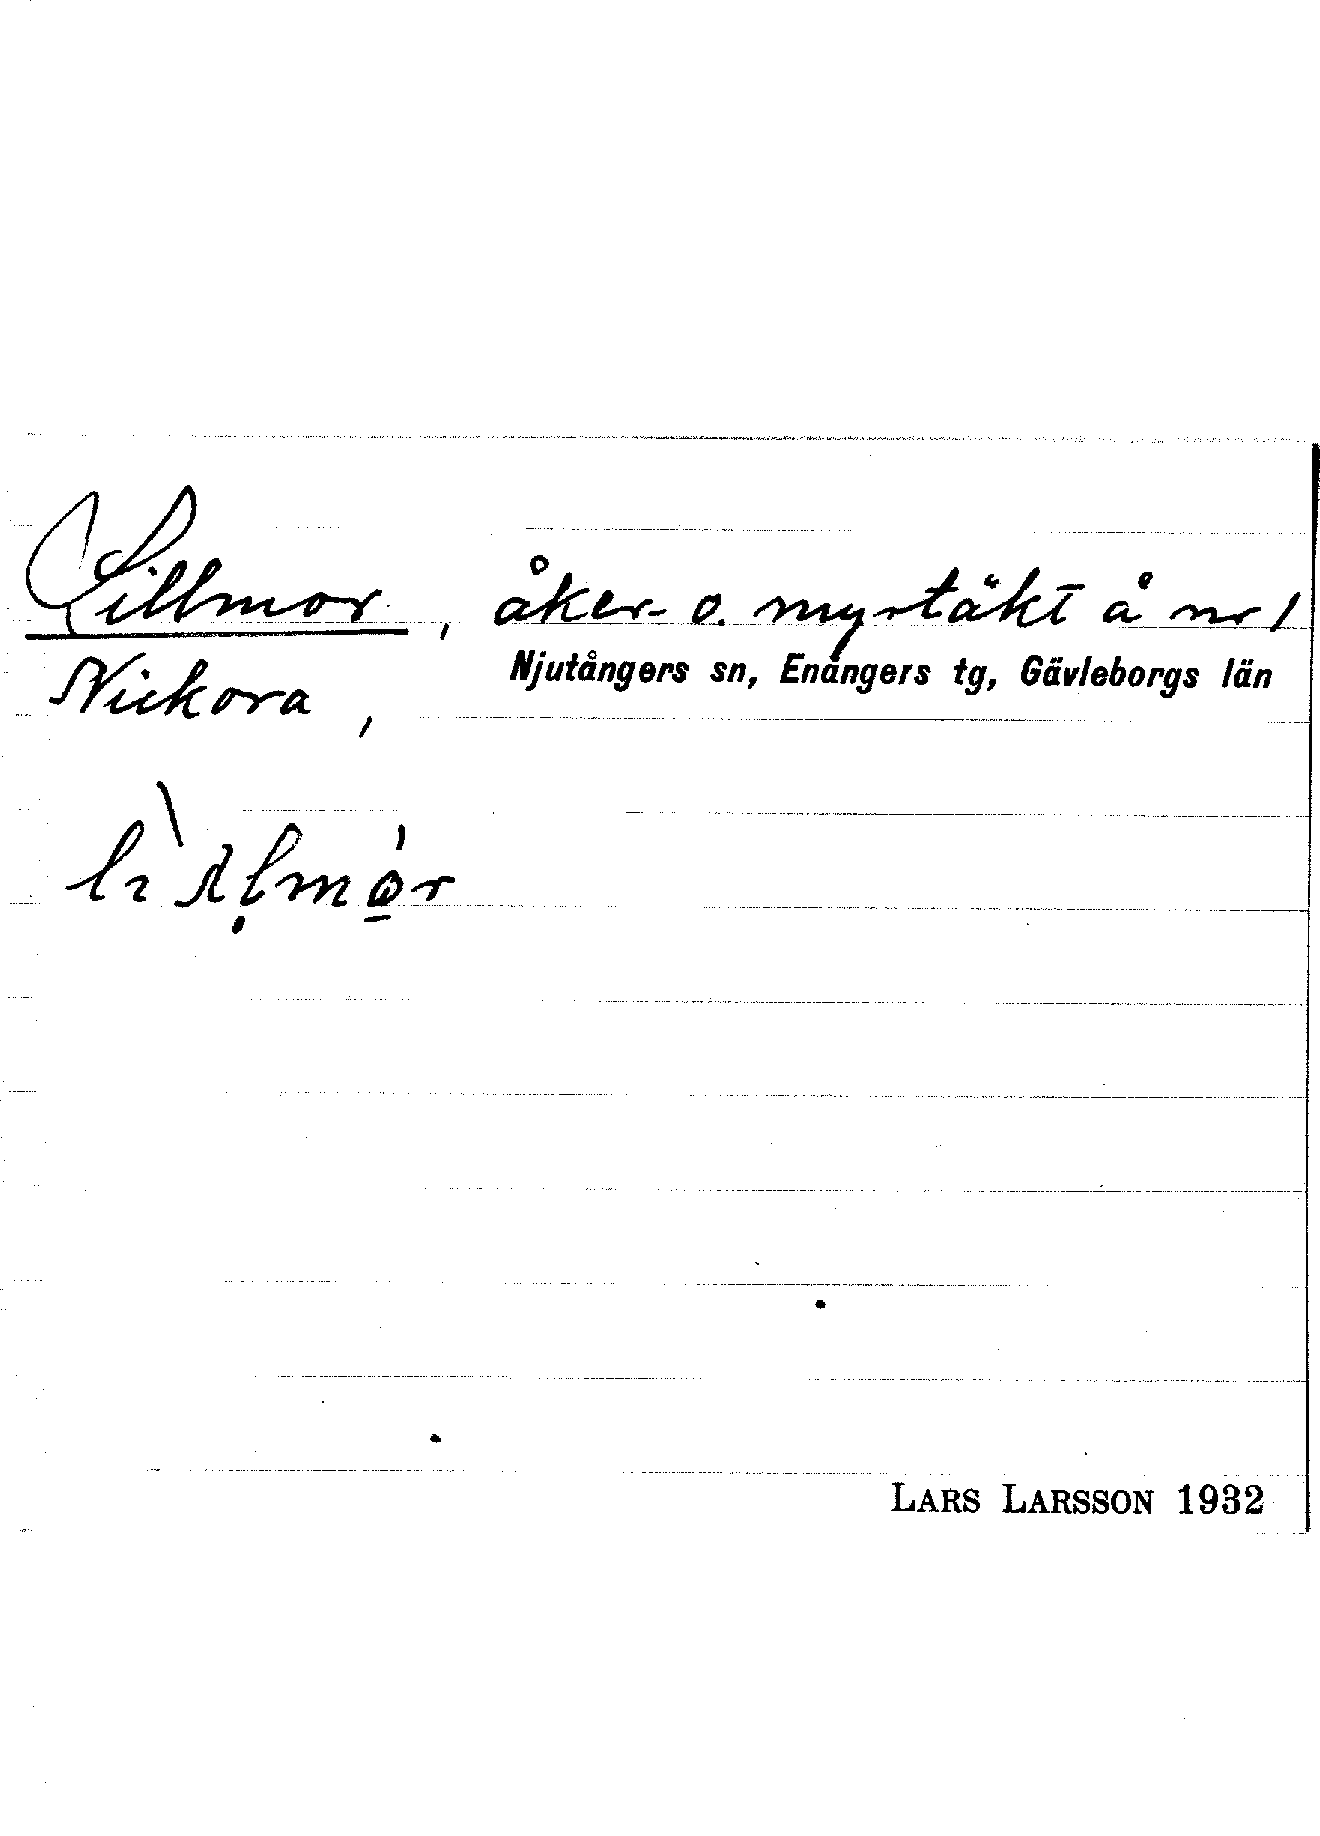 Lillmor, åker- o. myrtäkt å nr 1
Nickora, Njutångers sn, Enångers tg, Gävleborgs län
LARS LARSSON 1932